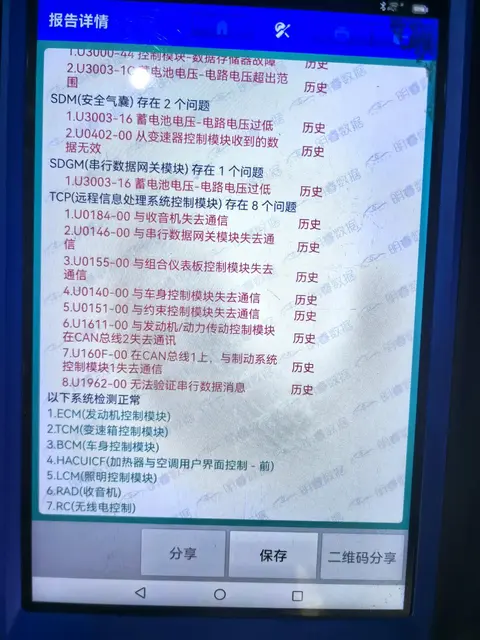 报告详情
1.U3000-44 控制模块-数据存储器故障 历史
2.U3003-1C 蓄电池电压-电路电压超出范 历史
围
SDM(安全气囊) 存在 2 个问题
1.U3003-16 蓄电池电压-电路电压过低 历史
2.U0402-00 从变速器控制模块收到的数 历史
据无效
SDGM(串行数据网关模块) 存在 1 个问题
1.U3003-16 蓄电池电压-电路电压过低 历史
TCP(远程信息处理系统控制模块) 存在 8 个问题
1.U0184-00 与收音机失去通信 历史
2.U0146-00 与串行数据网关模块失去通 历史
信
3.U0155-00 与组合仪表板控制模块失去 历史
通信
4.U0140-00 与车身控制模块失去通信 历史
5.U0151-00 与约束控制模块失去通信 历史
6.U1611-00 与发动机/动力传动控制模块 历史
在CAN总线2失去通讯
7.U160F-00 在CAN总线1上，与制动系统 历史
控制模块1失去通信
8.U1962-00 无法验证串行数据消息 历史
以下系统检测正常
1.ECM(发动机控制模块)
2.TCM(变速箱控制模块)
3.BCM(车身控制模块)
4.HACUICF(加热器与空调用户界面控制 - 前)
5.LCM(照明控制模块)
6.RAD(收音机)
7.RC(无线电控制)
分享 保存 二维码分享
明睿数据